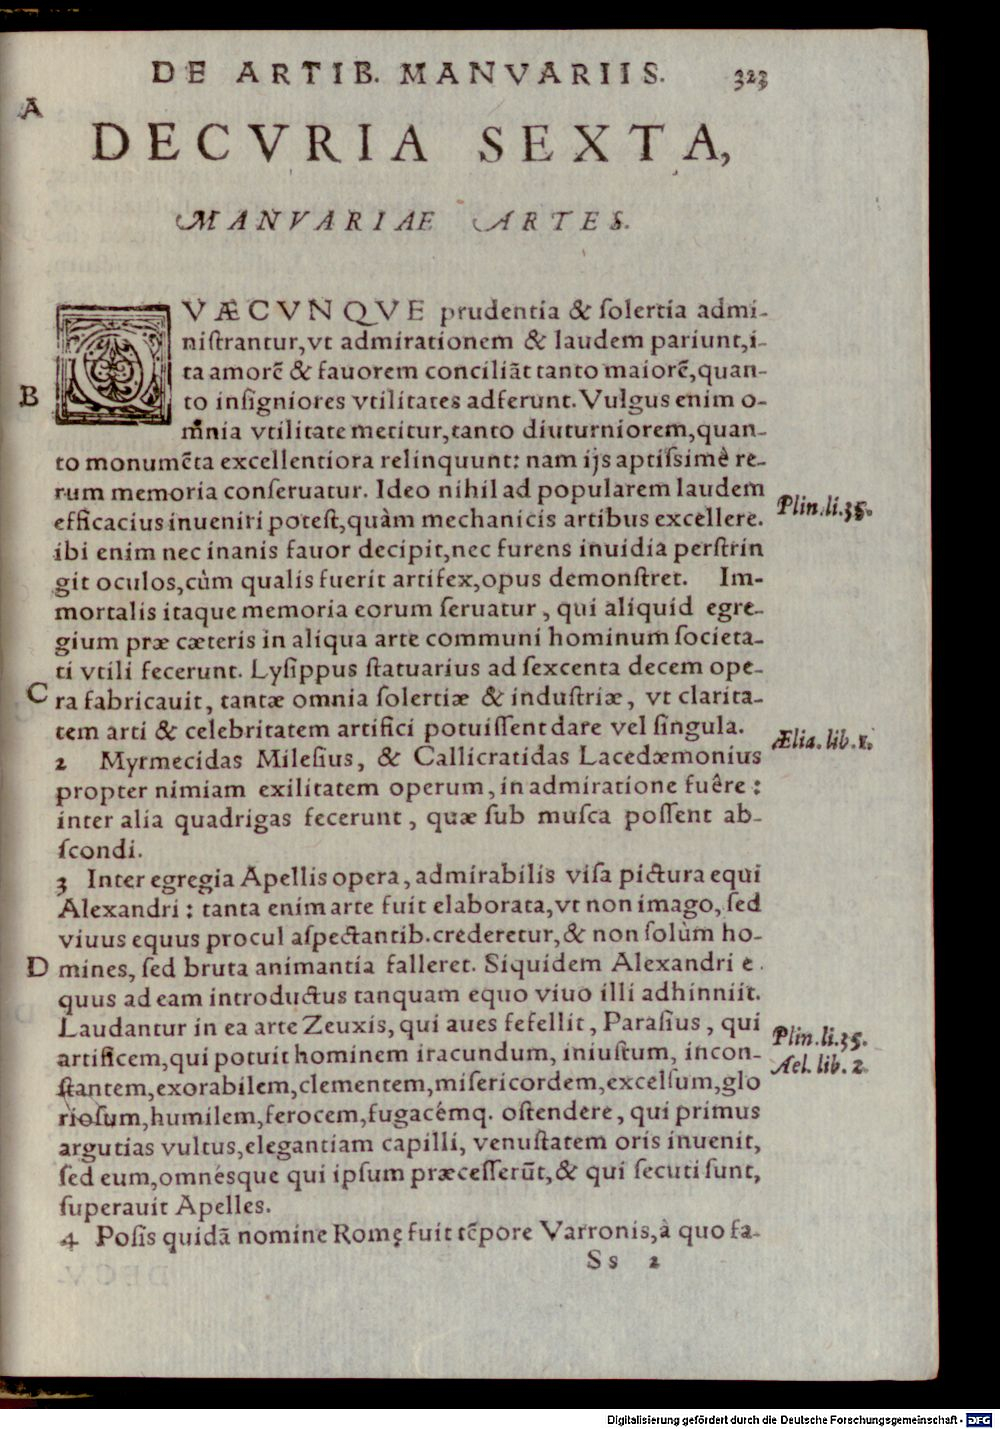 DE ARTIB. MANVARIIS. 323
A
DECVRIA SEXTA,
MANVARIAE ARTES.
QVÆCVNQVE prudentia & ſolertia admi-
niſtrantur,vt admirationem & laudem pariunt,i-
ta amorē & fauorem conciliāt tanto maiorē,quan-
B
to inſigniores vtilitates adferunt. Vulgus enim o-
mnia vtilitate metitur,tanto diuturniorem,quan-
to monumēta excellentiora relinquunt: nam ijs aptiſsimè re-
rum memoria conſeruatur. Ideo nihil ad popularem laudem
Plin.li.35.
efficacius inueniri poteſt,quàm mechanicis artibus excellere.
ibi enim nec inanis fauor decipit,nec furens inuidia perſtrin
git oculos,cùm qualis fuerit artifex,opus demonſtret. Im-
mortalis itaque memoria eorum ſeruatur, qui aliquid egre-
gium præ cæteris in aliqua arte communi hominum ſocieta-
ti vtili fecerunt. Lyſippus ſtatuarius ad ſexcenta decem ope-
C
ra fabricauit, tantæ omnia ſolertiæ & induſtriæ, vt clarita-
tem arti & celebritatem artifici potuiſſent dare vel ſingula.
Ælia. lib.1.
2 Myrmecidas Mileſius, & Callicratidas Lacedæmonius
propter nimiam exilitatem operum, in admiratione fuêre:
inter alia quadrigas fecerunt, quæ ſub muſca poſſent ab-
ſcondi.
3 Inter egregia Apellis opera, admirabilis viſa pictura equi
Alexandri: tanta enim arte fuit elaborata,vt non imago, ſed
viuus equus procul aſpectantib.crederetur,& non ſolùm ho-
D
mines, ſed bruta animantia falleret. Siquidem Alexandri e.
quus ad eam introductus tanquam equo viuo illi adhinniit.
Laudantur in ea arte Zeuxis, qui aues fefellit, Paraſius, qui
Plin.li.35.
artificem,qui potuit hominem iracundum, iniuſtum, incon-
Ael. lib. 2.
ſtantem,exorabilem,clementem,miſericordem,excelſum,glo
rioſum,humilem,ferocem,fugacémq. oſtendere, qui primus
argutias vultus,elegantiam capilli, venuſtatem oris inuenit,
ſed eum,omnésque qui ipſum præceſſerūt,& qui ſecuti ſunt,
ſuperauit Apelles.
4 Poſis quidā nomine Romę fuit tēpore Varronis,à quo fa-
Ss 2
Digitalisierung gefördert durch die Deutsche Forschungsgemeinschaft - DFG